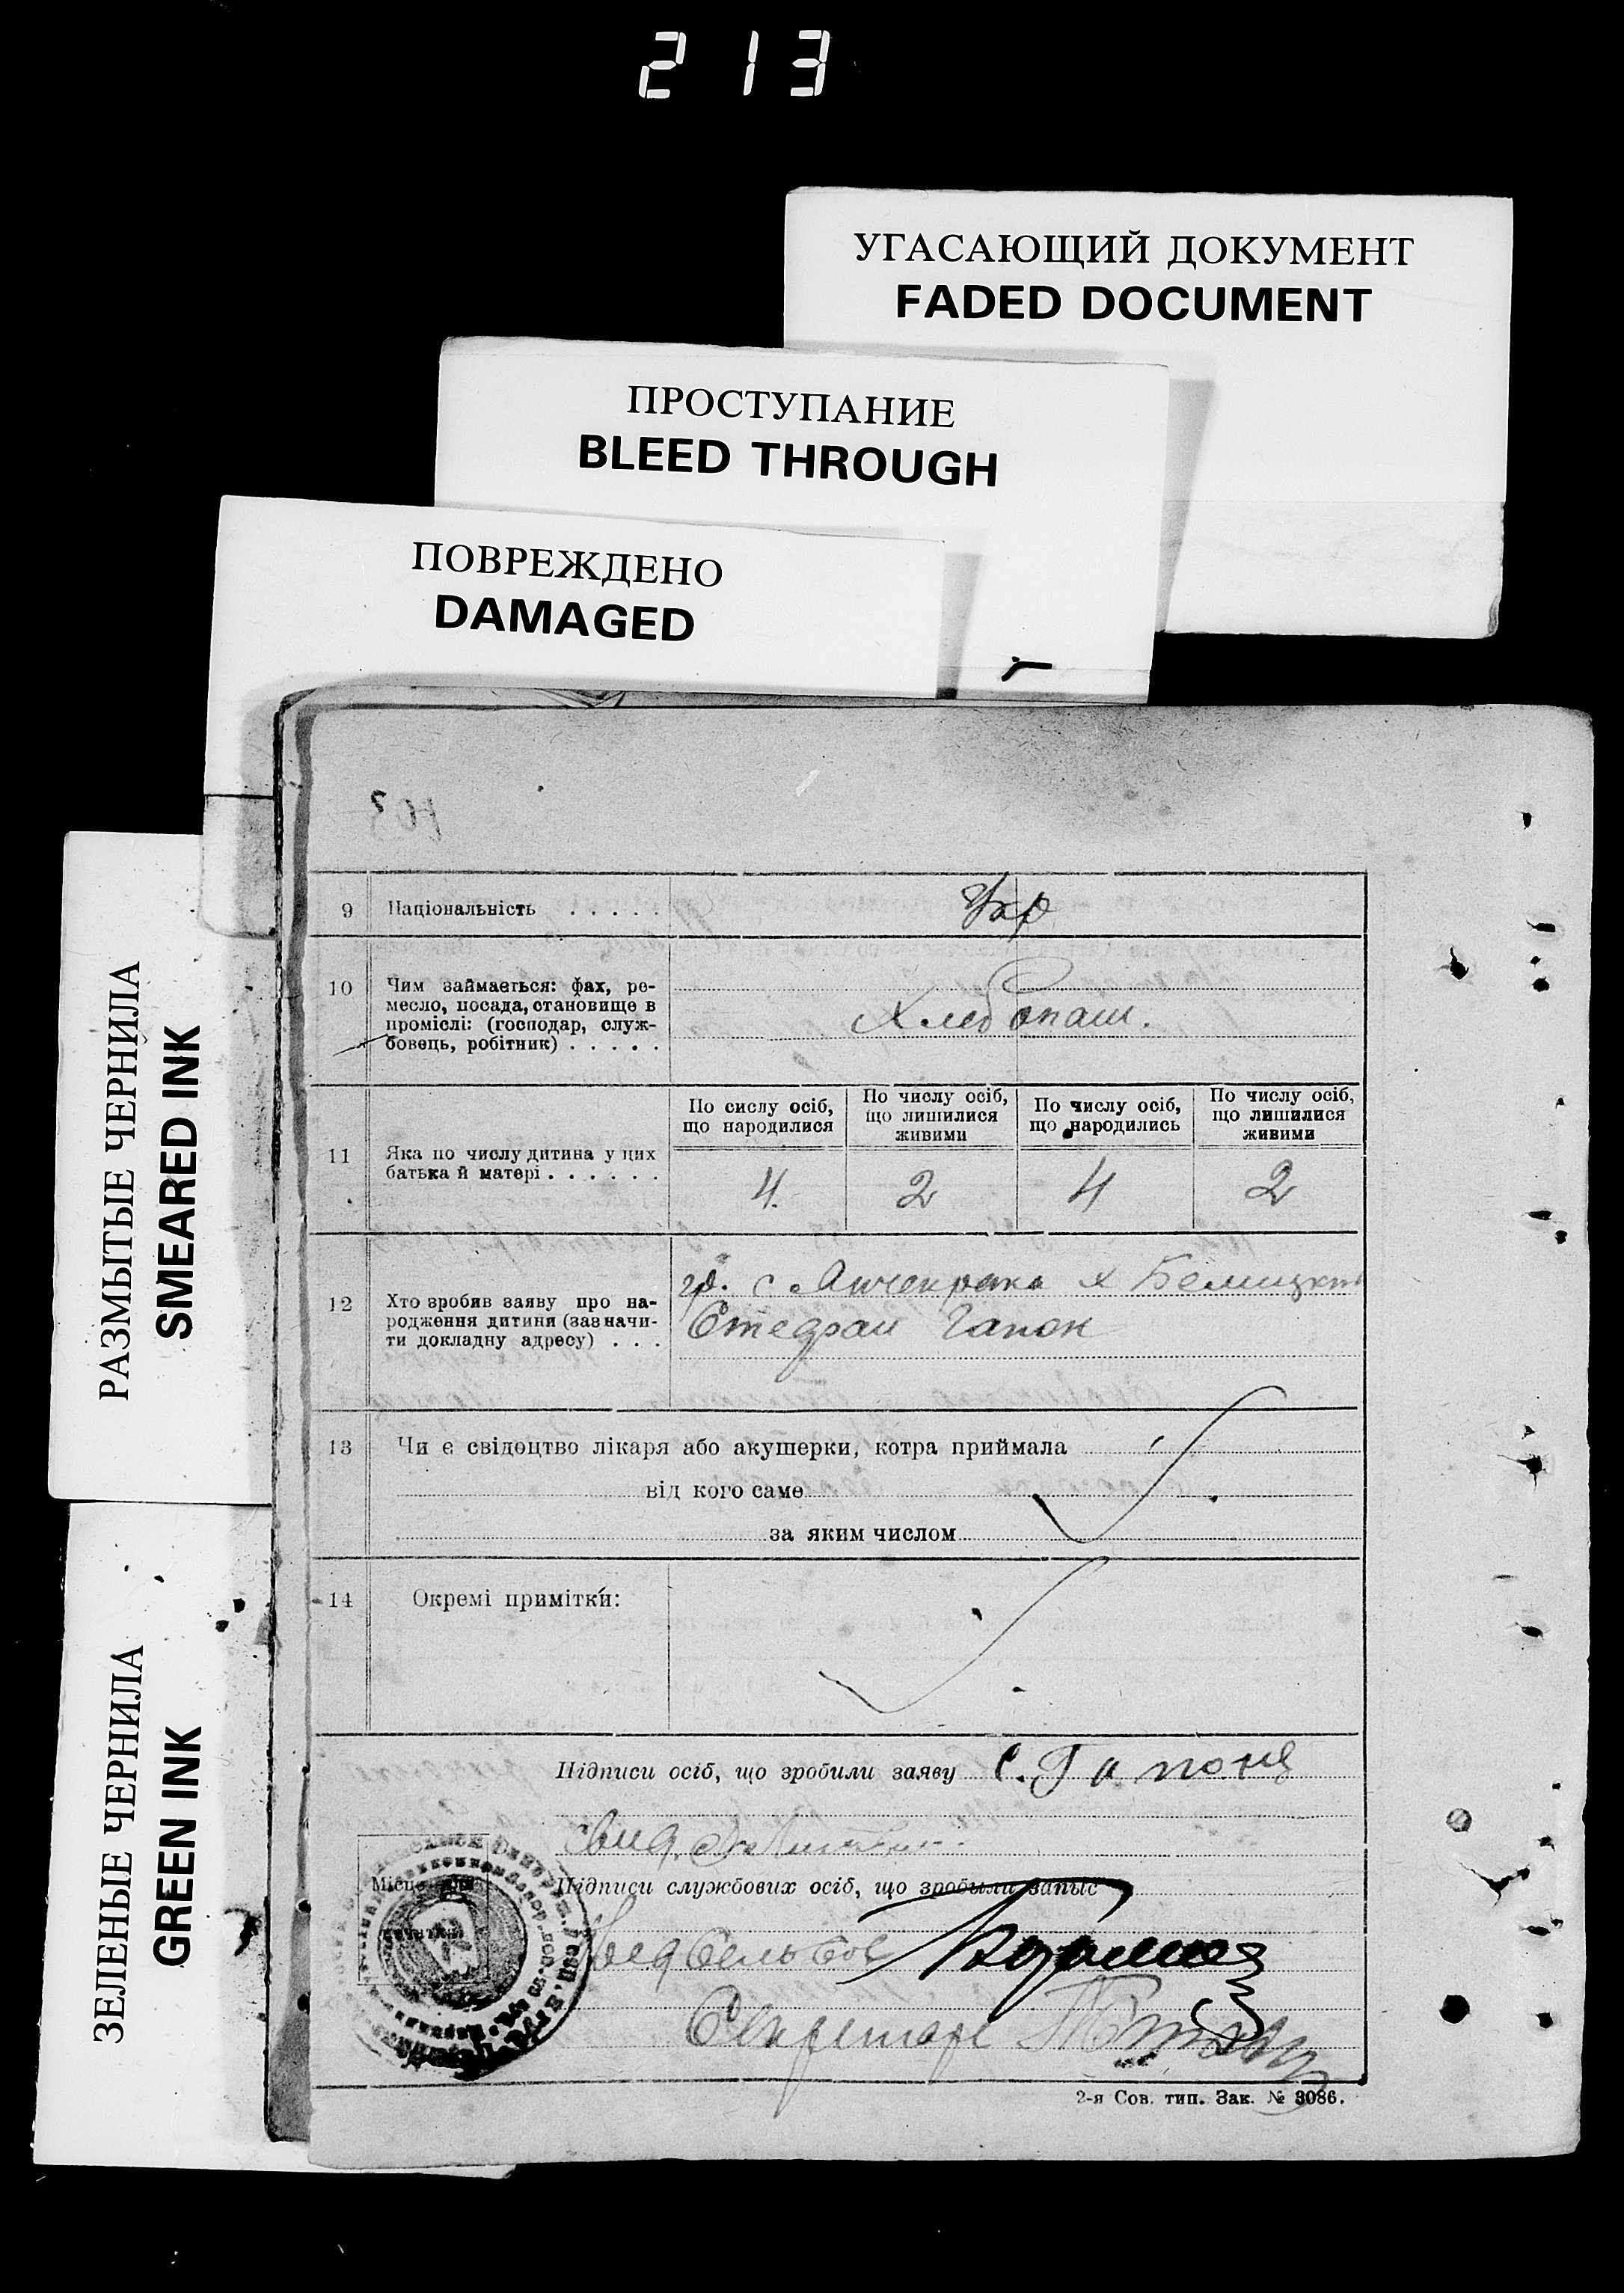 213
УГАСАЮЩИЙ ДОКУМЕНТ
FADED DOCUMENT
ПРОСТУПАНИЕ
BLEED THROUGH
ПОВРЕЖДЕНО
DAMAGED
РАЗМЫТЫЕ ЧЕРНИЛА
SMEARED INK
ЗЕЛЕНЫЕ ЧЕРНИЛА
GREEN INK
103
9 Національність . . . . . Укр
10 Чим займається: фах, ре-
месло, посада, становище в
промислі: (господар, служ-
бовець, робітник) . . . . .
Хлебопаш.
11 Яка по числу дитина у цих
батька й матері . . . . . .
По сислу осіб,
що народилися
По числу осіб,
що лишилися
живими
По числу осіб,
що народились
По числу осіб,
що лишилися
живими
4. 2 4 2
12 Хто зробив заяву про на-
родження дитини (зазначи-
ти докладну адресу) . . .
гр. с. х
Стефан Гапон
13 Чи є свідоцтво лікаря або акушерки, котра приймала
від кого саме
за яким числом
14 Окремі примітки:
Підписи осіб, що зробили заяву С. Гапонц
свид.
Підписи службових осіб, що зробили запис
Місце для
печатки
Сельсов
Секретарь
2-я Сов. тип. Зак. № 3086.